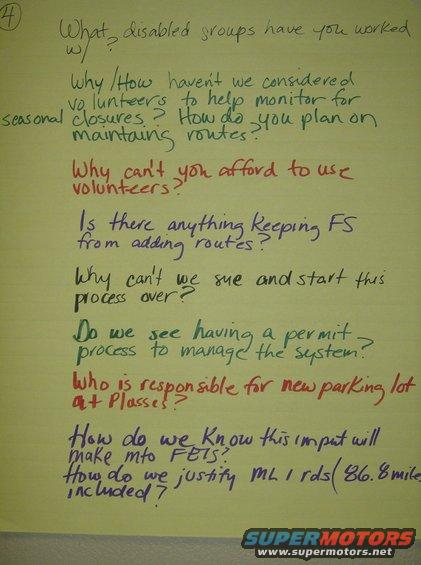 4
What disabled groups have you worked
w/?
Why/How haven't we considered
volunteers to help monitor for
seasonal closures? How do you plan on
maintaing routes?
Why can't you afford to use
volunteers?
Is there anything keeping FS
from adding routes?
Why can't we sue and start this
process over?
Do we see having a permit
process to manage the system?
Who is responsible for new parking lot
at Plasses?
How do we know this input will
make into FEIS?
How do we justify ML 1 rds (86.8 mile
included?
SUPERMOTORS
www.supermotors.net